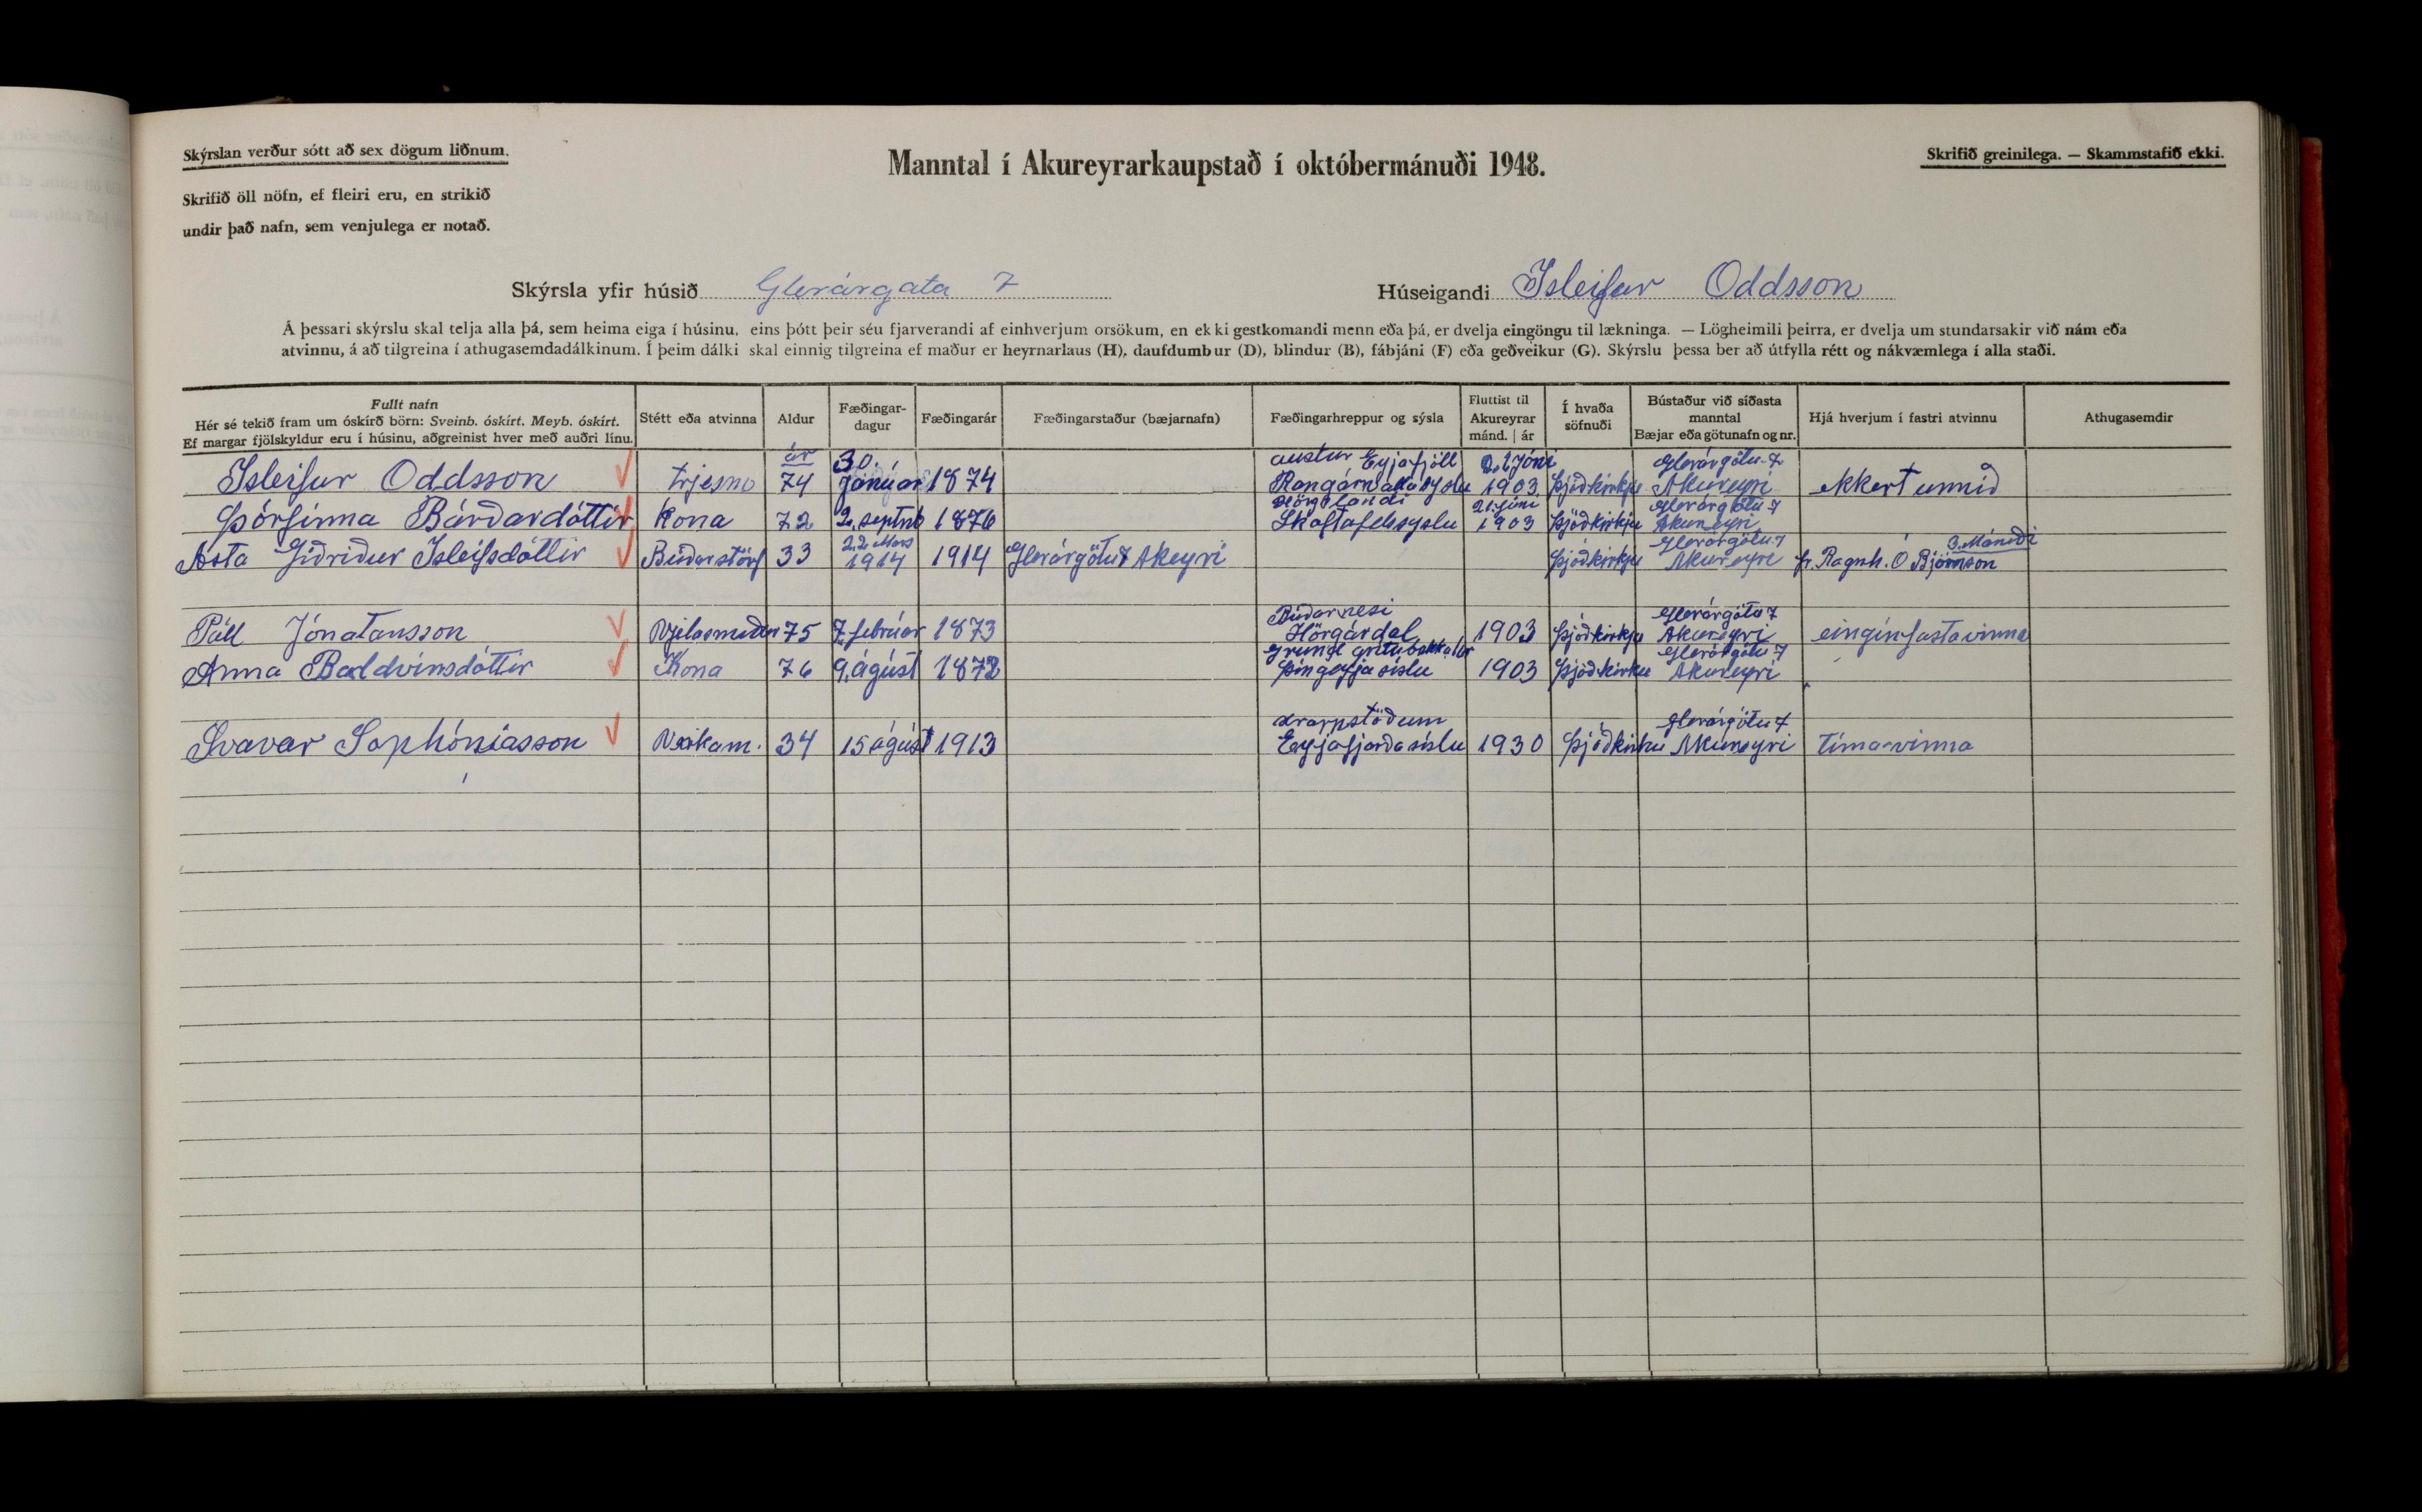 Skýrslan verður sótt að sex dögum liðnum.
Manntal í Akureyrarkaupstað í októbermánuði 1948.
Skrifið greinilega. — Skammstafið ekki.
Skrifið öll nöfn, ef fleiri eru, en strikið
undir það nafn, sem venjulega er notað.
Skýrsla yfir húsið Glerárgata 7
Húseigandi Isleifur Oddsson
Á þessari skýrslu skal telja alla þá, sem heima eiga í húsinu, eins þótt þeir séu fjarverandi af einhverjum orsökum, en ekki gestkomandi menn eða þá, er dvelja eingöngu til lækninga. — Lögheimili þeirra, er dvelja um stundarsakir við nám eða
atvinnu, á að tilgreina í athugasemdadálkinum. Í þeim dálki skal einnig tilgreina ef maður er heyrnarlaus (H), daufdumbur (D), blindur (B), fábjáni (F) eða geðveikur (G). Skýrslu þessa ber að útfylla rétt og nákvæmlega í alla staði.
Fullt nafn
Hér sé tekið fram um óskírð börn: Sveinb. óskírt. Meyb. óskírt.
Ef margar fjölskyldur eru í húsinu, aðgreinist hver með auðri línu.
Stétt eða atvinna
Aldur
Fæðingar-
dagur
Fæðingarár
Fæðingarstaður (bæjarnafn)
Fæðingarhreppur og sýsla
Fluttist til
Akureyrar
mánd. | ár
Í hvaða
söfnuði
Bústaður við síðasta
manntal
Bæjar eða götunafn og nr.
Hjá hverjum í fastri atvinnu
Athugasemdir
ár 30. austur Eyjafjöll 2.1 Jóní Glerárgötu 7
Isleifur Oddsson trjesm 74 janúar 1874 Rangárvallasyslu 1903 Þjóðkirkju Akureyri ekkert unnið
Hörgslandi 21. Júní Glerárgötu 7
Þórfinna Bárðardóttir Kona 72 2. septnb 1876 Skaftafelssyslu 1903 Þjóðkirkju Akureyri
22 Mars Glerárgötu 7 3. Mánuði
Asta Giðriður Isleifsdóttir Búðarstörf 33 1914 1914 Glerárgötu 7 Akeyri Þjóðkirkju Akureyri fr. Ragnh. O Björnson
Búðarnesi Glerárgötu 7
Páll Jónatansson 75 7. febrúar 1873 Hörgárdal 1903 Þjóðkirkju Akureyri eingin fasta vinna
Grund Glerárgötu 7
Anna Baldvinsdóttir Kona 76 9. ágúst 1872 Þingeyja síslu 1903 Þjóðkirkju Akureyri
Glerárgötu 7
Svavar Sophóníasson Verkam. 34 15 ágúst 1913 Eyjafjarðasíslu 1930 Þjóðkirku Akureyri tímavinna